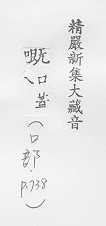 精嚴新集大藏音
嘅 口盖(口部. p.738)